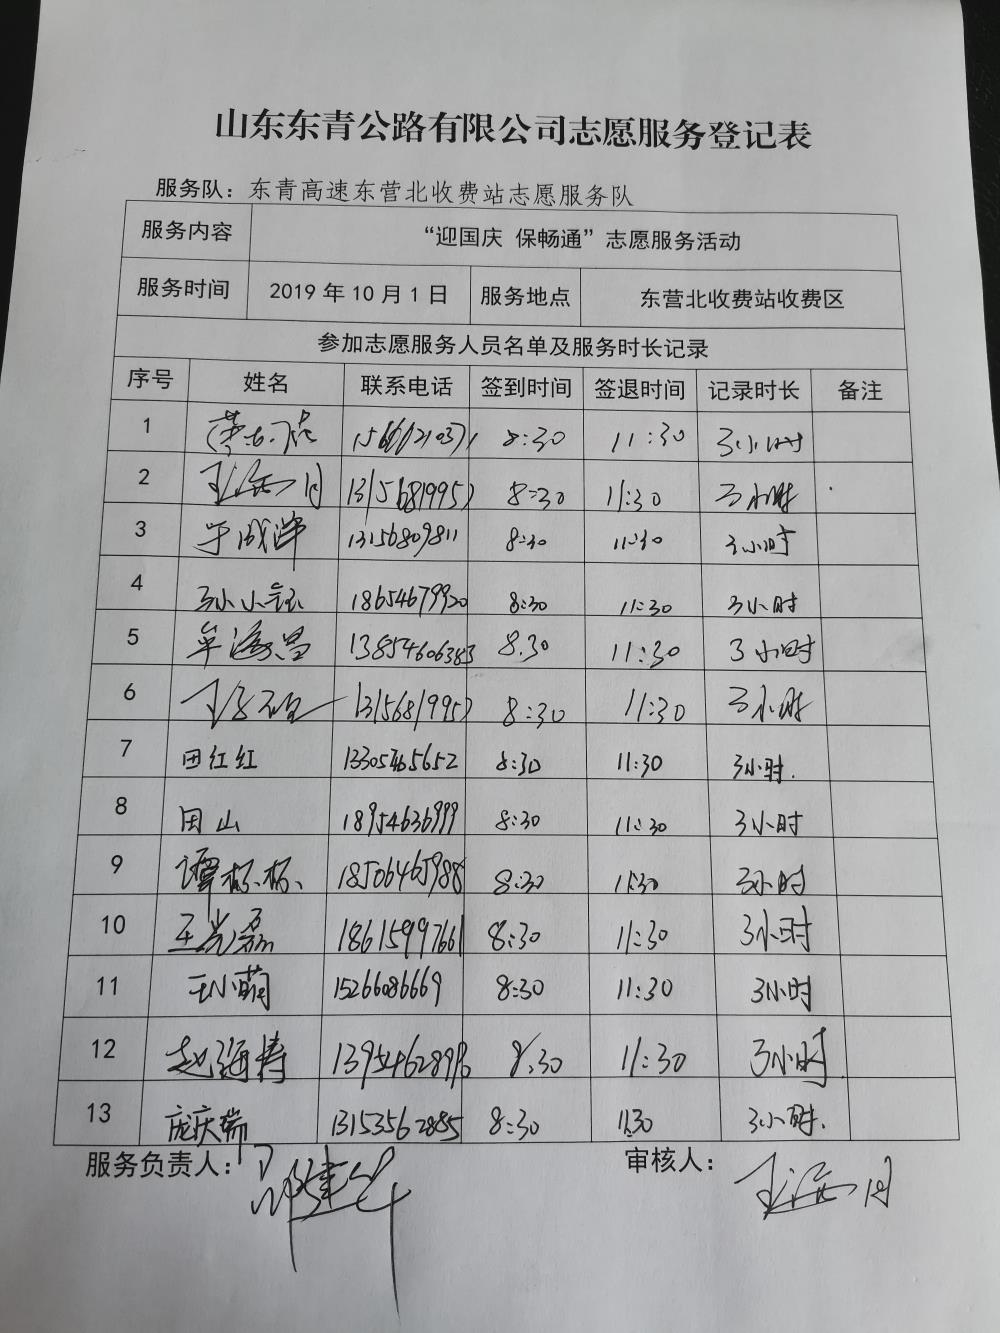 山东东青公路有限公司志愿服务登记表
服务队：东青高速东营北收费站志愿服务队
服务内容 “迎国庆 保畅通”志愿服务活动
服务时间 2019年10月1日 服务地点 东营北收费站收费区
参加志愿服务人员名单及服务时长记录
序号 姓名 联系电话 签到时间 签退时间 记录时长 备注
1 8:30 11:30 3小时
2 13156819957 8:30 11:30 3小时
3 于成洋 13156809811 8:30 11:30 3小时
4 孙小钰 18654679920 8:30 11:30 3小时
5 牟海昌 13854606383 8.30 11:30 3小时
6 13156819957 8:30 11:30 3小时
7 田红红 13305465652 8:30 11:30 3小时.
8 田山 18954636999 8:30 11:30 3小时
9 谭杯杯 18506465988 8:30 11:30 3小时
10 王光磊 18615997661 8:30 11:30 3小时
11 王小萌 15266086669 8:30 11:30 3小时
12 赵海涛 8:30 11:30 3小时
13 庞庆瑞 13153562885 8:30 11:30 3小时.
服务负责人： 审核人：